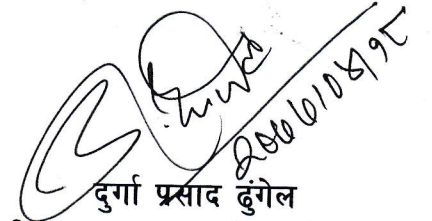 २०७७।०४।१८
दुर्गा प्रसाद ढुंगेल